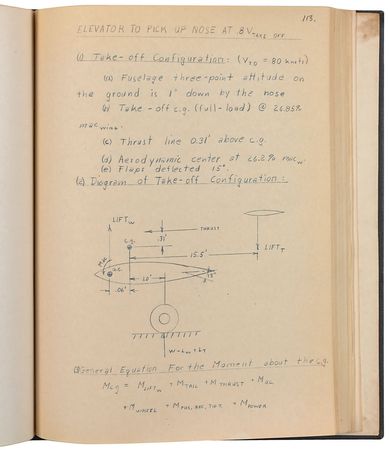 113.
ELEVATOR TO PICK UP NOSE AT .8 V TAKE OFF
(1) Take-off Configuration: (VTO = 80 knots)
(a) Fuselage three-point attitude on
the ground is 1° down by the nose
(b) Take-off c.g. (full-load) @ 26.85%
mac wing.
(c) Thrust line 0.31' above c.g.
(d) Aerodynamic center at 26.2% macw.
(e) Flaps deflected 15°.
(2) Diagram of Take-off Configuration:
LIFTW
THRUST
c.g.
.31'
LIFTT
15.5'
a.c.
1.0'
.06'
W-LW+LT
(3) General Equation For the Moment about the c.g.
Mcg = MLIFTW + MTAIL + MTHRUST + Mac
+ MWHEEL + MFUS, NAC, TIPT + MPOWER